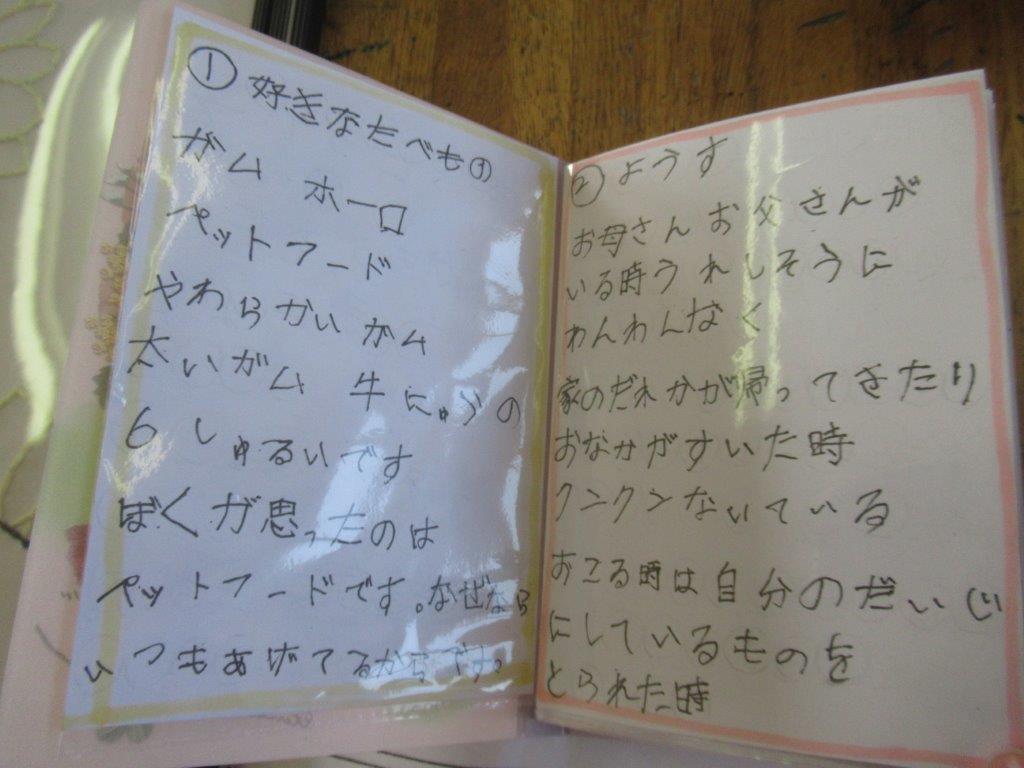 ① 好きなたべもの
ガム ホーロ
ペットフード
やわらかい ガム
太いガム 牛にゅうの
6しゅるいです
ぼくが思ったのは
ペットフードです。なぜなら
いつもあげてるからです。
② ようす
お母さん お父さんが
いる時うれしそうに
わんわんなく
家のだれかが帰ってきたり
おなかがすいた時
クンクンないている
おこる時は自分のだいじ
にしているものを
とられた時